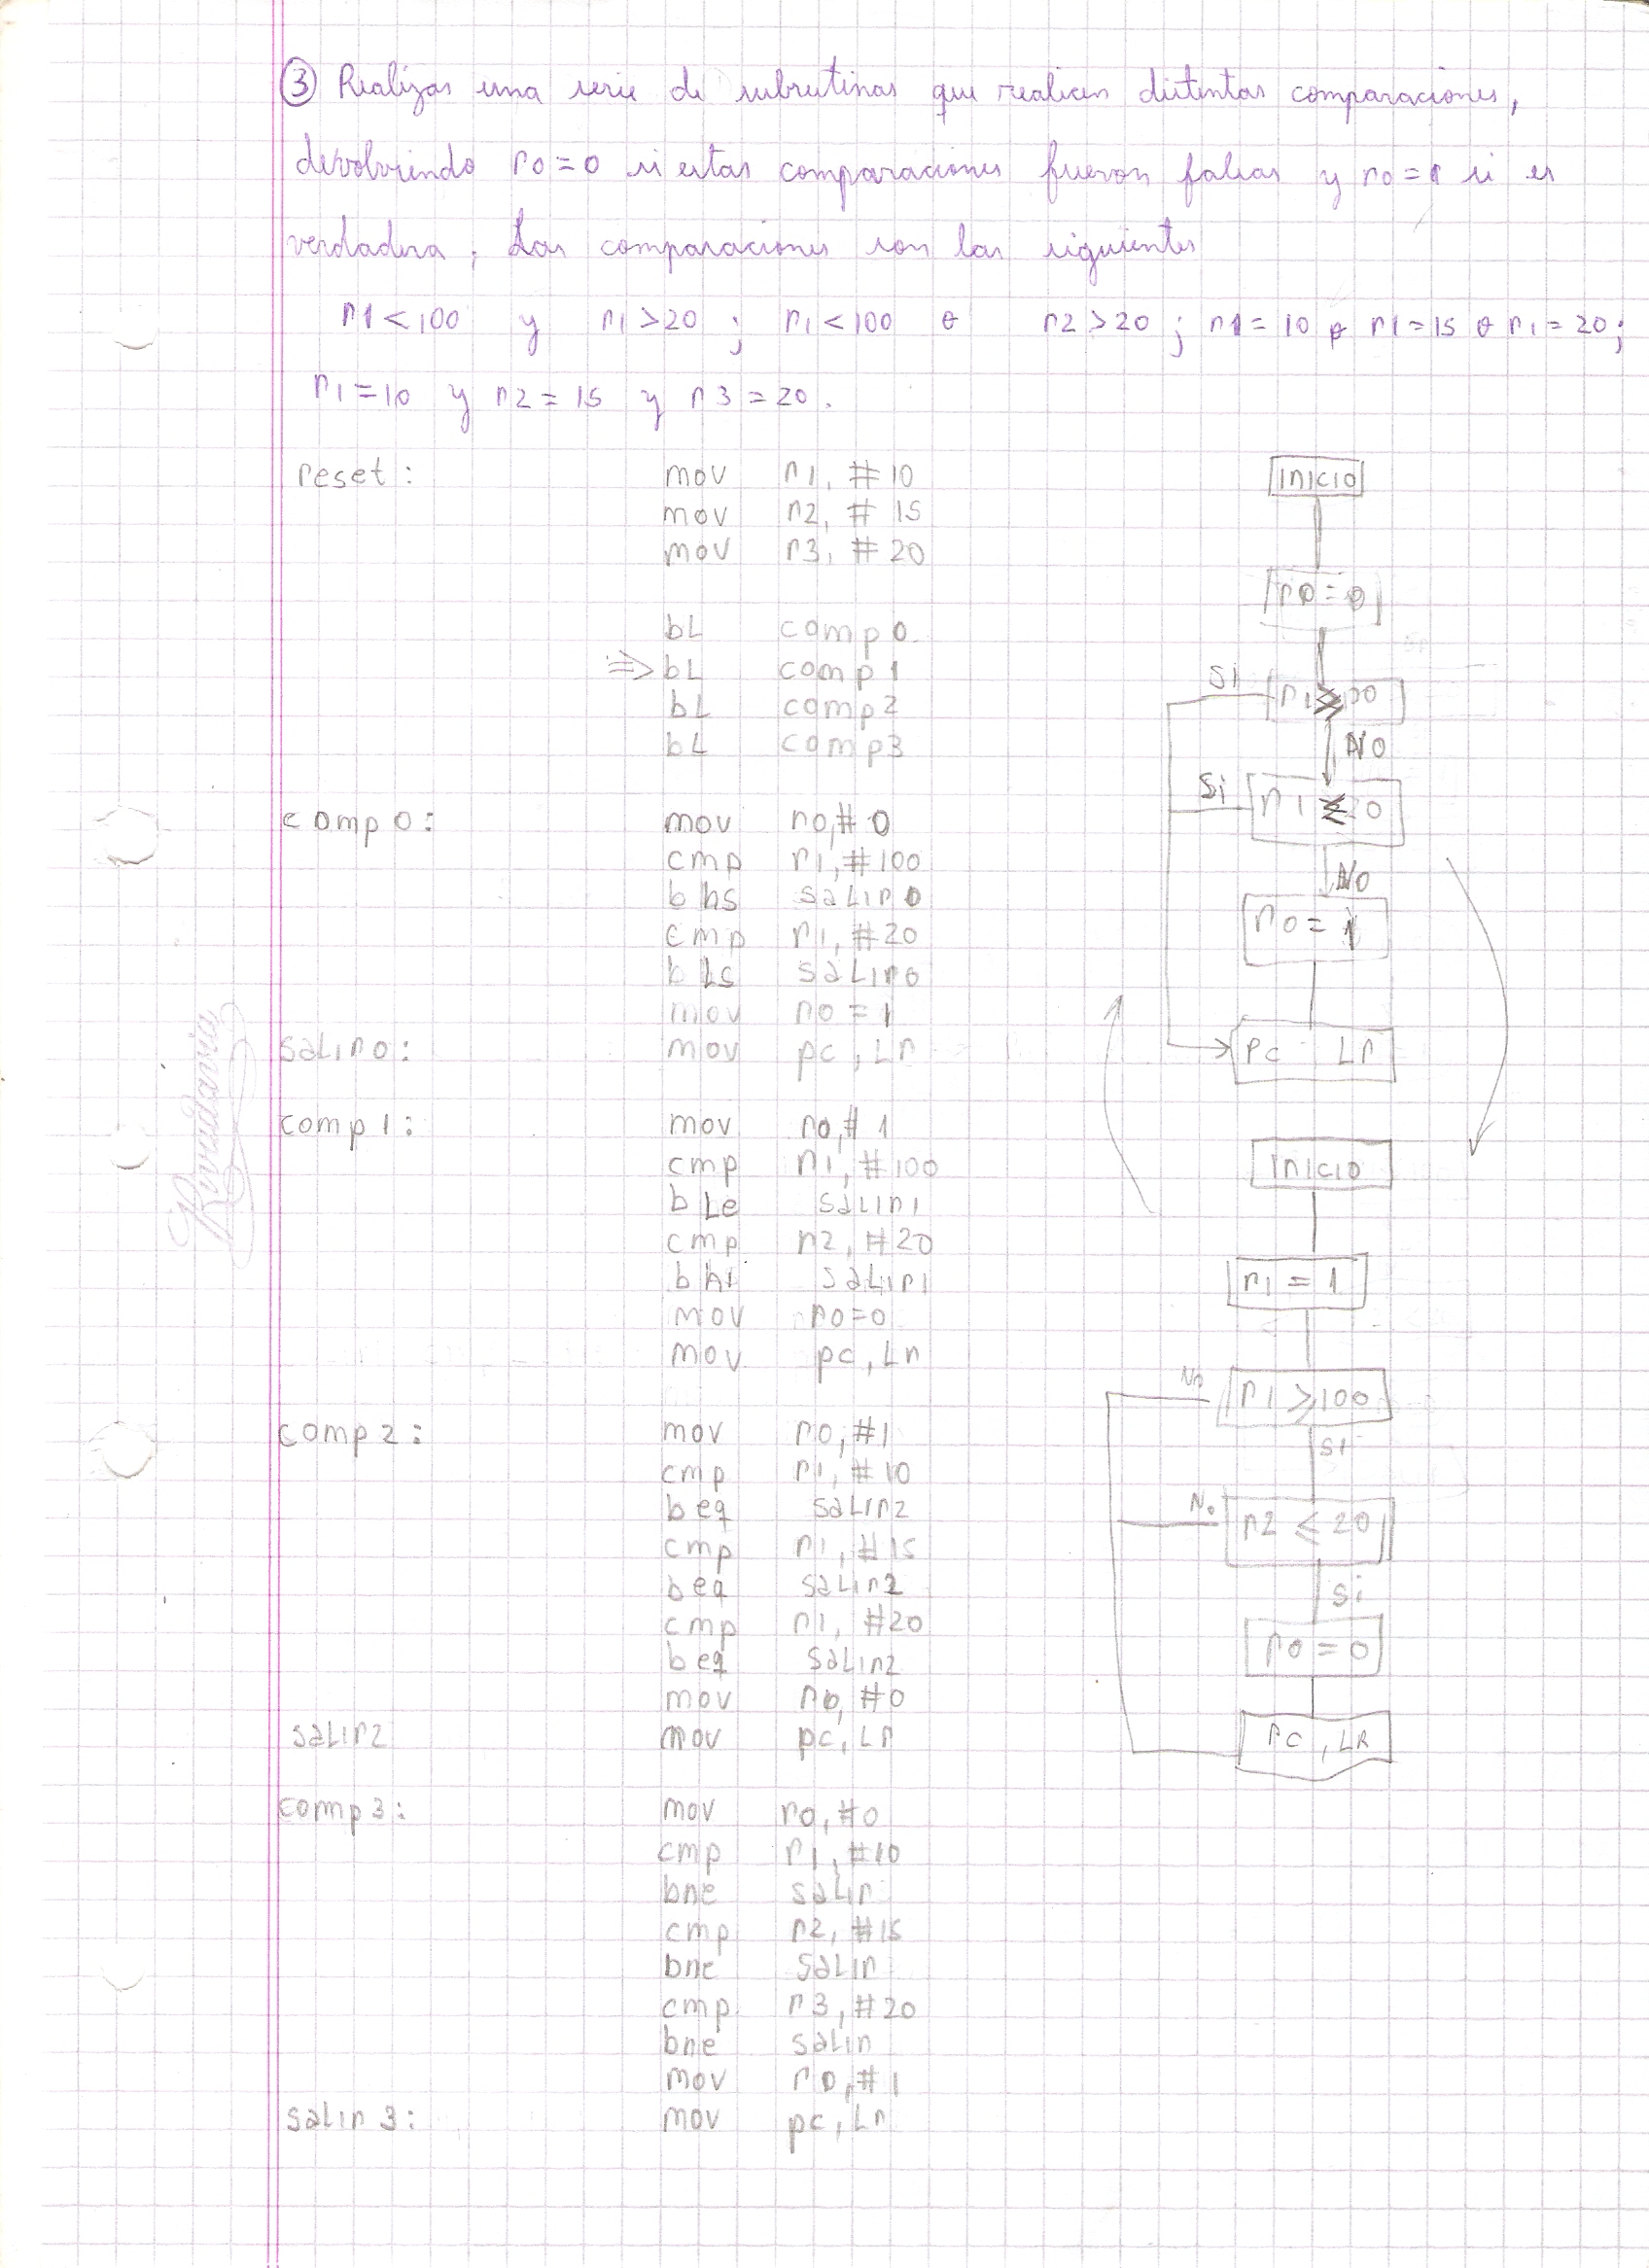 ③ Realizar una serie de subrutinas que realicen distintas comparaciones,
devolviendo r0=0 si estas comparaciones fueron falsas y r0=1 si es
verdadera, Las comparaciones son las siguientes
r1<100 y r1>20 ; r1<100 o r2>20 ; r1=10 o r1=15 o r1=20;
r1=10 y r2=15 y r3=20.
reset: mov r1, #10
mov r2, #15
mov r3, #20
bL comp0
⇒ bL comp1
bL comp2
bL comp3
comp0: mov r0,#0
cmp r1,#100
bhs saLir0
cmp r1,#20
bLs saLir0
mov r0=1
saLir0: mov pc,Lr
comp1: mov r0,#1
cmp r1,#100
bLe saLir1
cmp r2,#20
bhi saLir1
mov r0=0
mov pc,Lr
comp2: mov r0,#1
cmp r1,#10
beq saLir2
cmp r1,#15
beq saLir2
cmp r1, #20
beq saLir2
mov r0,#0
saLir2 mov pc,Lr
comp3: mov r0,#0
cmp r1,#10
bne saLir
cmp r2,#15
bne saLir
cmp r3,#20
bne saLir
mov r0,#1
saLir3: mov pc,Lr
inicio
r0=0
Si
r1≥
NO
Si
r1≤20
NO
r0=1
Pc Lr
inicio
r1=1
No
r1≥100
si
No
r2≤20
Si
r0=0
PC,LR
Rivadavia